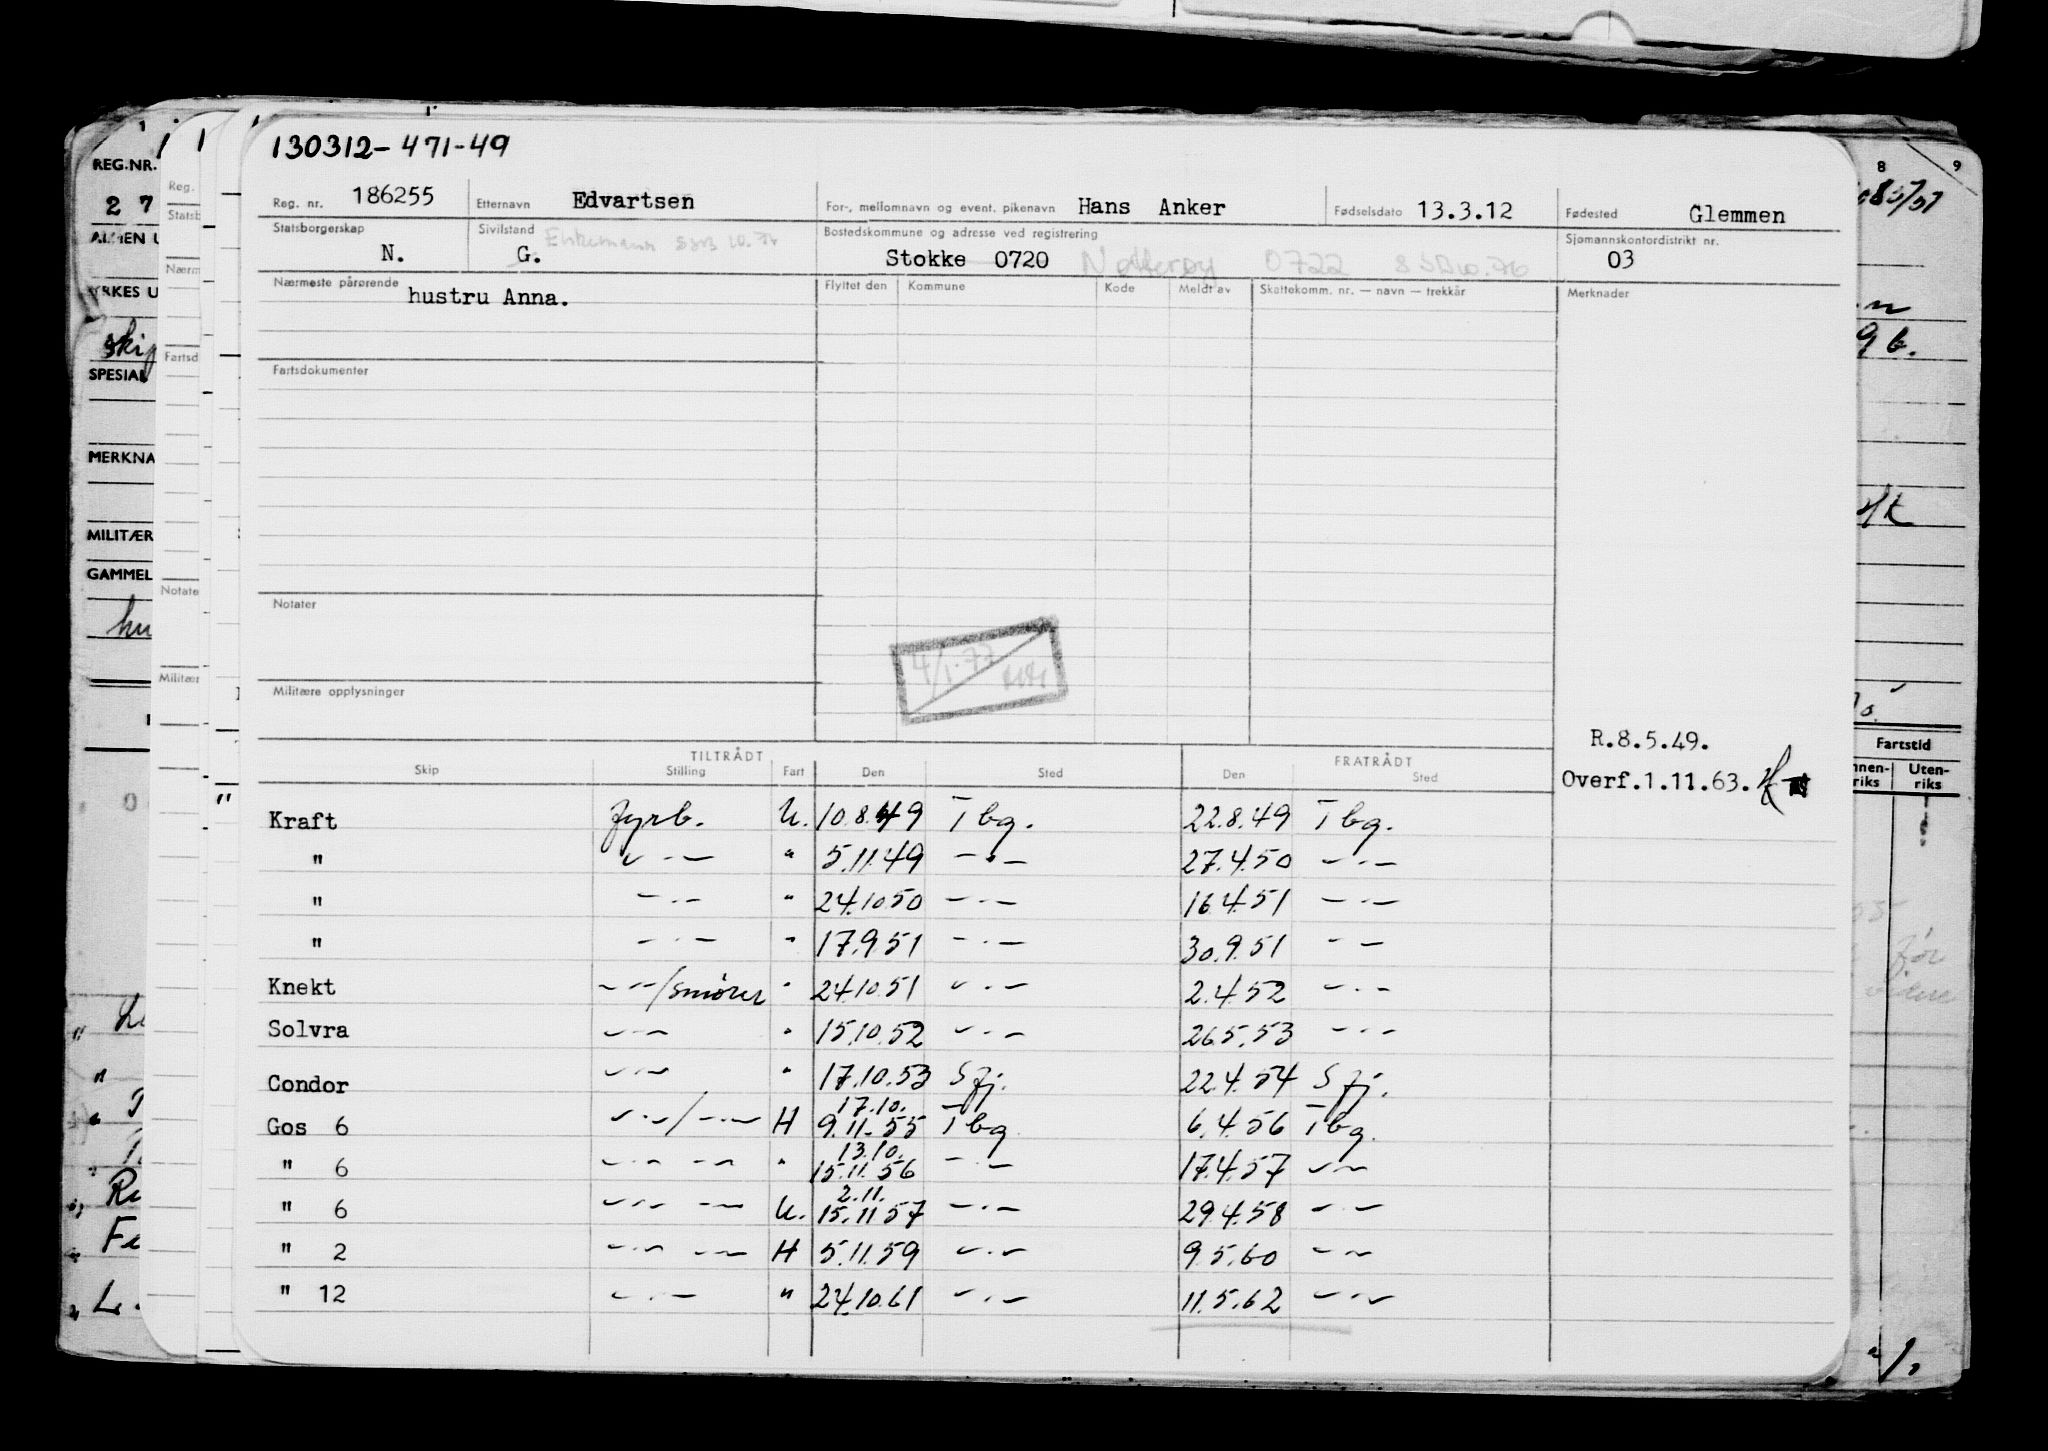 130312-471-49
Reg. nr. 186255 Etternavn Edvartsen For-, mellomnavn og event. pikenavn Hans Anker Fødselsdato 13.3.12 Fødested Glemmen
Statsborgerskap N. Sivilstand G. Enkemann Bostedskommune og adresse ved registrering Stokke 0720 Nøtterøy 0722 Sjømannskontordistrikt nr. 03
Nærmeste pårørende hustru Anna. Flyttet den Kommune Kode Meldt av Skattekomm. nr. — navn — trekkår Merknader
Fartsdokumenter
Notater
4/1.77
Militære opplysninger
R.8.5.49.
Overf.1.11.63.
TILTRÅDT FRATRÅDT
Skip Stilling Fart Den Sted Den Sted
Kraft fyrb. U. 10.8.49 Tbg. 22.8.49 Tbg.
" —·— " 5.11.49 —·— 27.4.50 —·—
" —·— " 24.10.50 —·— 16.4.51 —·—
" —·— " 17.9.51 —·— 30.9.51 — —
Knekt —·—/smører " 24.10.51 —·— 2.4.52 —·—
Solvra —·— " 15.10.52 —·— 26.5.53 —·—
Condor —·— " 17.10.53 Sfj. 22.4.54 Sfj.
17.10.
Gos 6 —·—/—·— H 9.11.55 Tbg. 6.4.56 Tbg.
13.10.
" 6 —·— — — " 15.11.56 —·— 17.4.57 — —
2.11.
" 6 —·— — — U. 15.11.57 —·— 29.4.58 —·—
" 2 —·— — — H 5.11.59 —·— 9.5.60 — —
" 12 —·— " 24.10.61 —·— 11.5.62 —·—
REG.NR.
2 7
YRKES U
SPESIAL
MERKNA
MILITÆR
GAMMEL
hu
Reg.
Statsb
Nærm
Fartsd
Notate
Militær
8 9
Fartstid
nnen-
riks
Uten-
riks